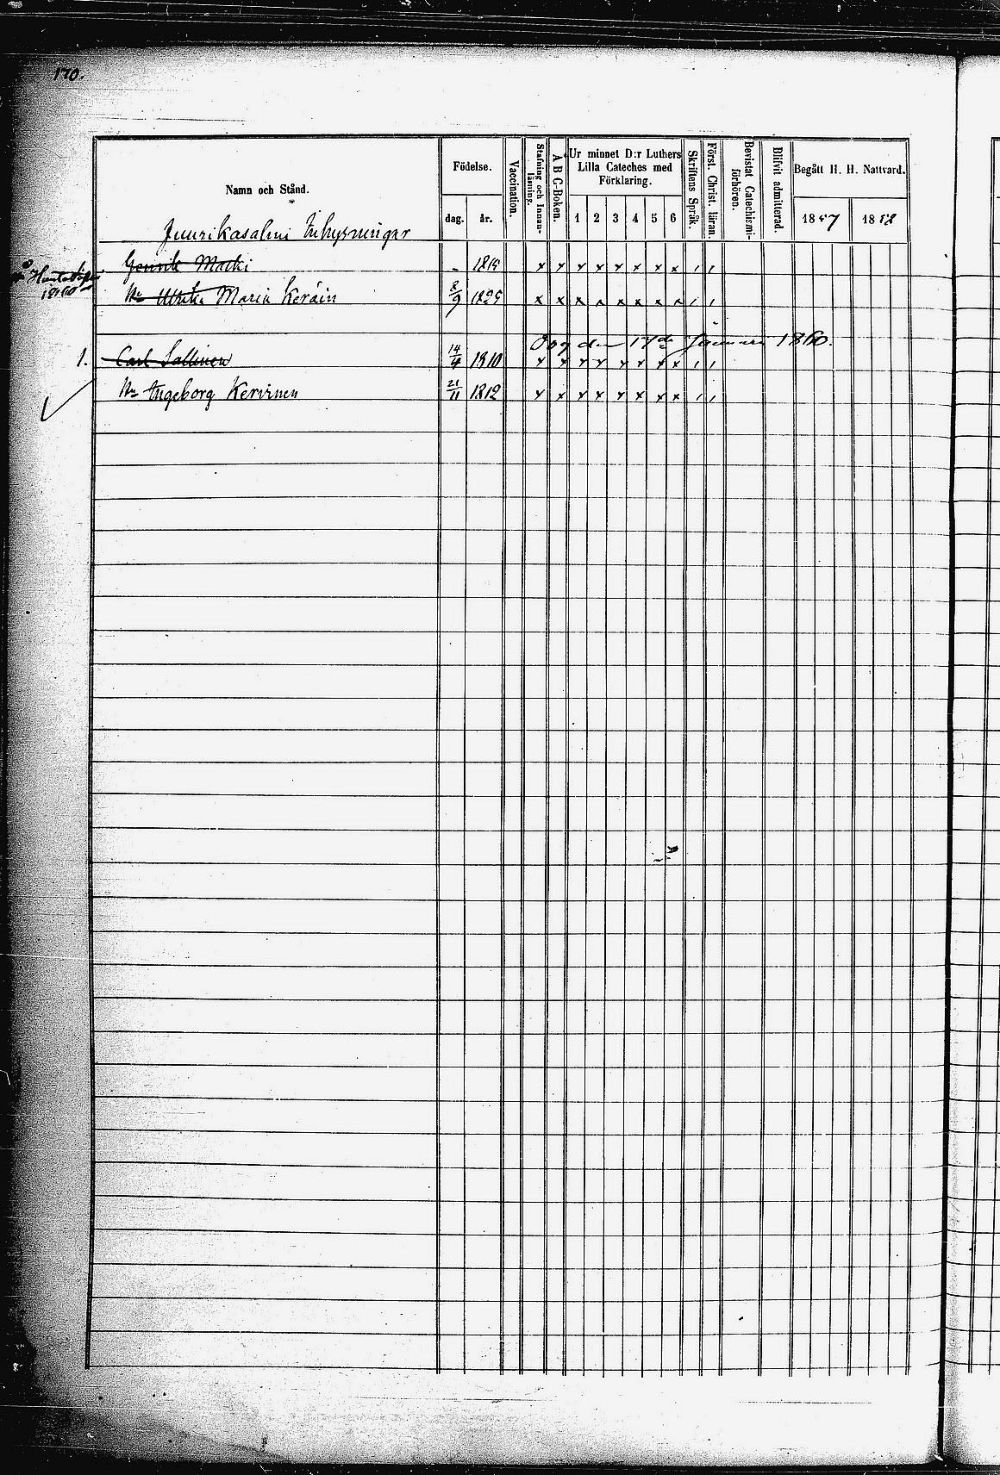 170.
Namn och Stånd.
Födelse.
dag. år.
Vaccination.
Stafning och Innan-läsning.
A B C-Boken.
Ur minnet D:r Luthers
Lilla Cateches med
Förklaring.
1 2 3 4 5 6
Skriftens Språk.
Först. Christ. läran.
Bevistat Catechismi-förhören.
Blifvit admitterad.
Begått H. H. Nattvard.
1857 1858
Juurikasalmi Inhysningar
Henrik Matti - 1819 x x x x x x x x , ,
1860
Hu Ulrika Maria Keräin 8/9 1825 x x x x x x x x , ,
Dog den 17de Januari 1860.
1. Carl Sallinen 14/4 1810 x x x x x x x x , ,
Hu Ingeborg Kervinen 21/11 1812 x x x x x x x x , ,